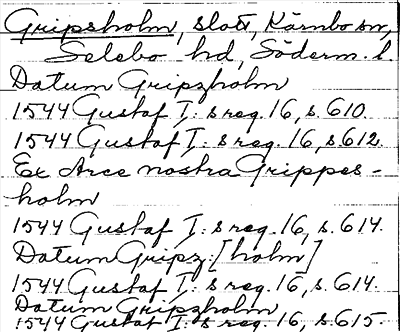 Gripsholm, slott, Kärnbo sn,
Selebo hd, Söderm. l.
Datum Gripzholm
1544 Gustaf I:s reg. 16, s. 610.
1544 Gustaf I:s reg. 16, s. 612.
Ex Arce nostra Grippes-
holm
1544 Gustaf I:s reg. 16, s. 614.
Datum Gripz:[holm]
1544 Gustaf I:s reg. 16, s. 614.
Datum Gripzholm
1544 Gustaf I:s reg. 16, s. 615.